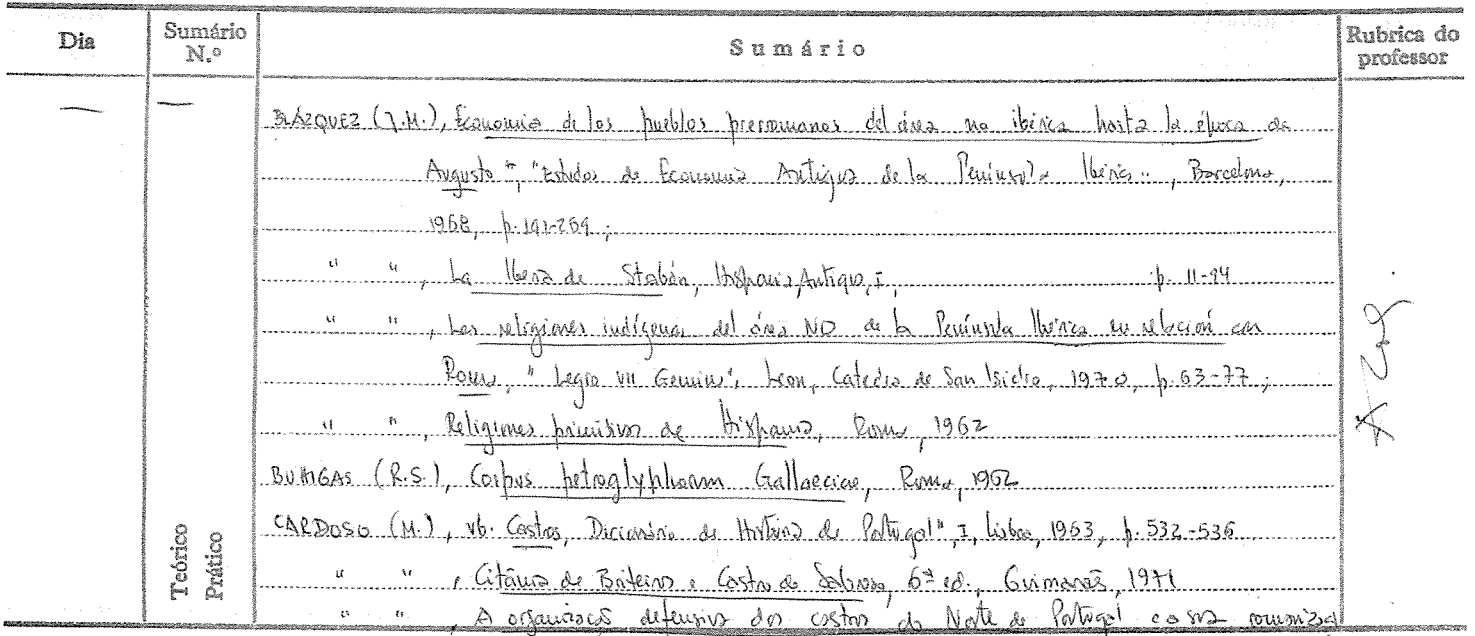 Dia Sumário N.º Sumário Rubrica do professor
— —
BLÁZQUEZ (J.M.), Economia de los pueblos prerromanos del área no ibérica hasta la época de
Augusto", "Estudos de Economia Antigua de la Península Ibérica", Barcelona,
1968, p. 191-269;
" ", La Iberia de Strabón, Hispania Antiqua, I, p. 11-94
" ", Las religiones indígenas del área NO de la Península Ibérica en relación con
Roma, "Legio VII Gemina", Leon, Catedra de San Isidro, 1970, p. 63-77;
" ", Religiones primitivas de Hispania, Roma, 1962
(R.S.), Corpus petroglyphorum Gallaeciae, Roma, 1962
CARDOSO (M.), vb. Castros, Dicionário de História de Portugal", I, Lisboa, 1963, p. 532-536
" ", Citânia de Briteiros e Castro de Sabroso, 6ª ed., Guimarães, 1971
" ", A organização defensiva dos castros do Norte de Portugal e a sua
Teórico
Prático